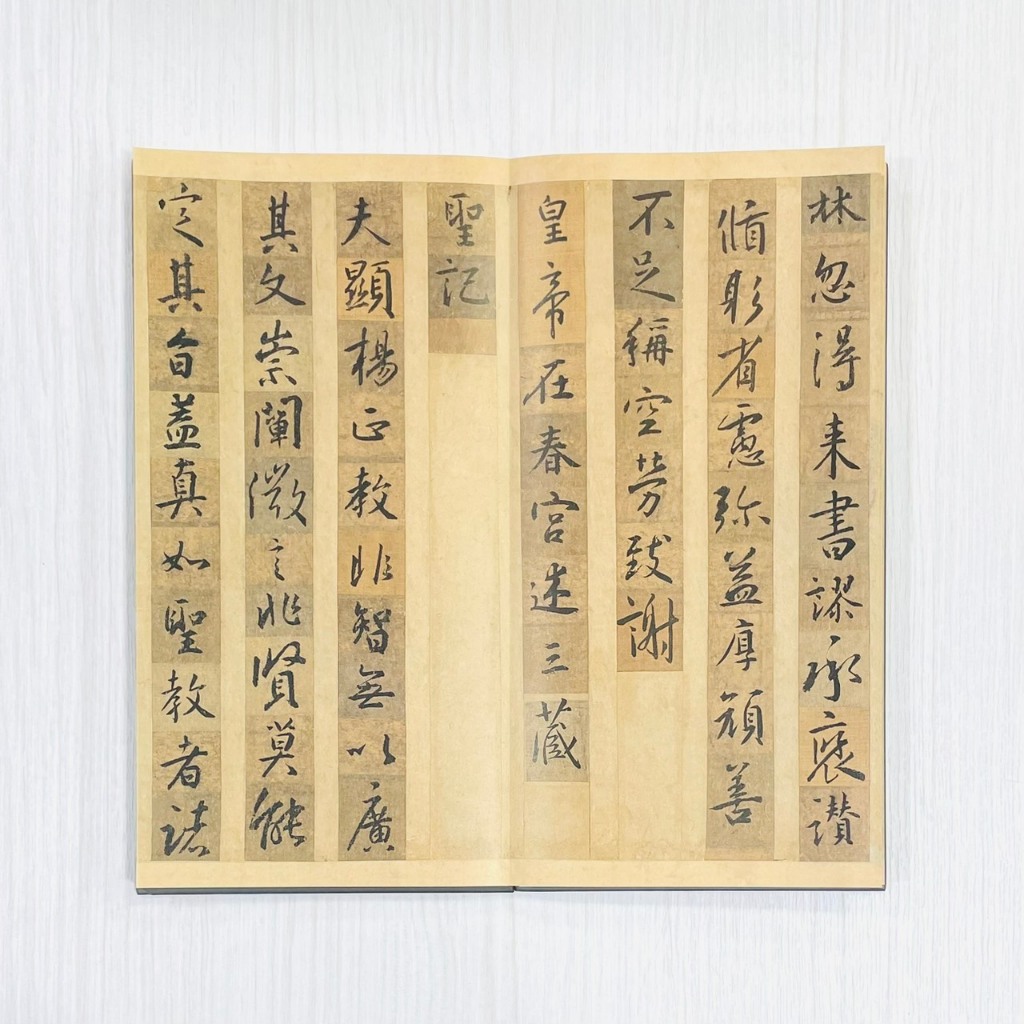 林忽得来書謬承褒讃
脩躬省慮弥益厚顔善
不足稱空勞致謝
皇帝在春宮述三藏
聖記
夫顯楊正教非智無以廣
其文崇闡微言非賢莫能
定其旨蓋真如聖教者諸